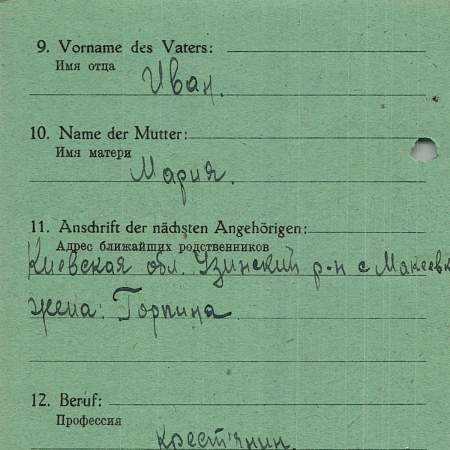 9. Vorname des Vaters:
Имя отца
Иван.
10. Name der Mutter:
Имя матери
Мария.
11. Anschrift der nächsten Angehörigen:
Адрес ближайших родственников
Киевская обл. Узинский р-н с Макеевк
жена: Горпина
12. Beruf:
Профессия
крест'янин.